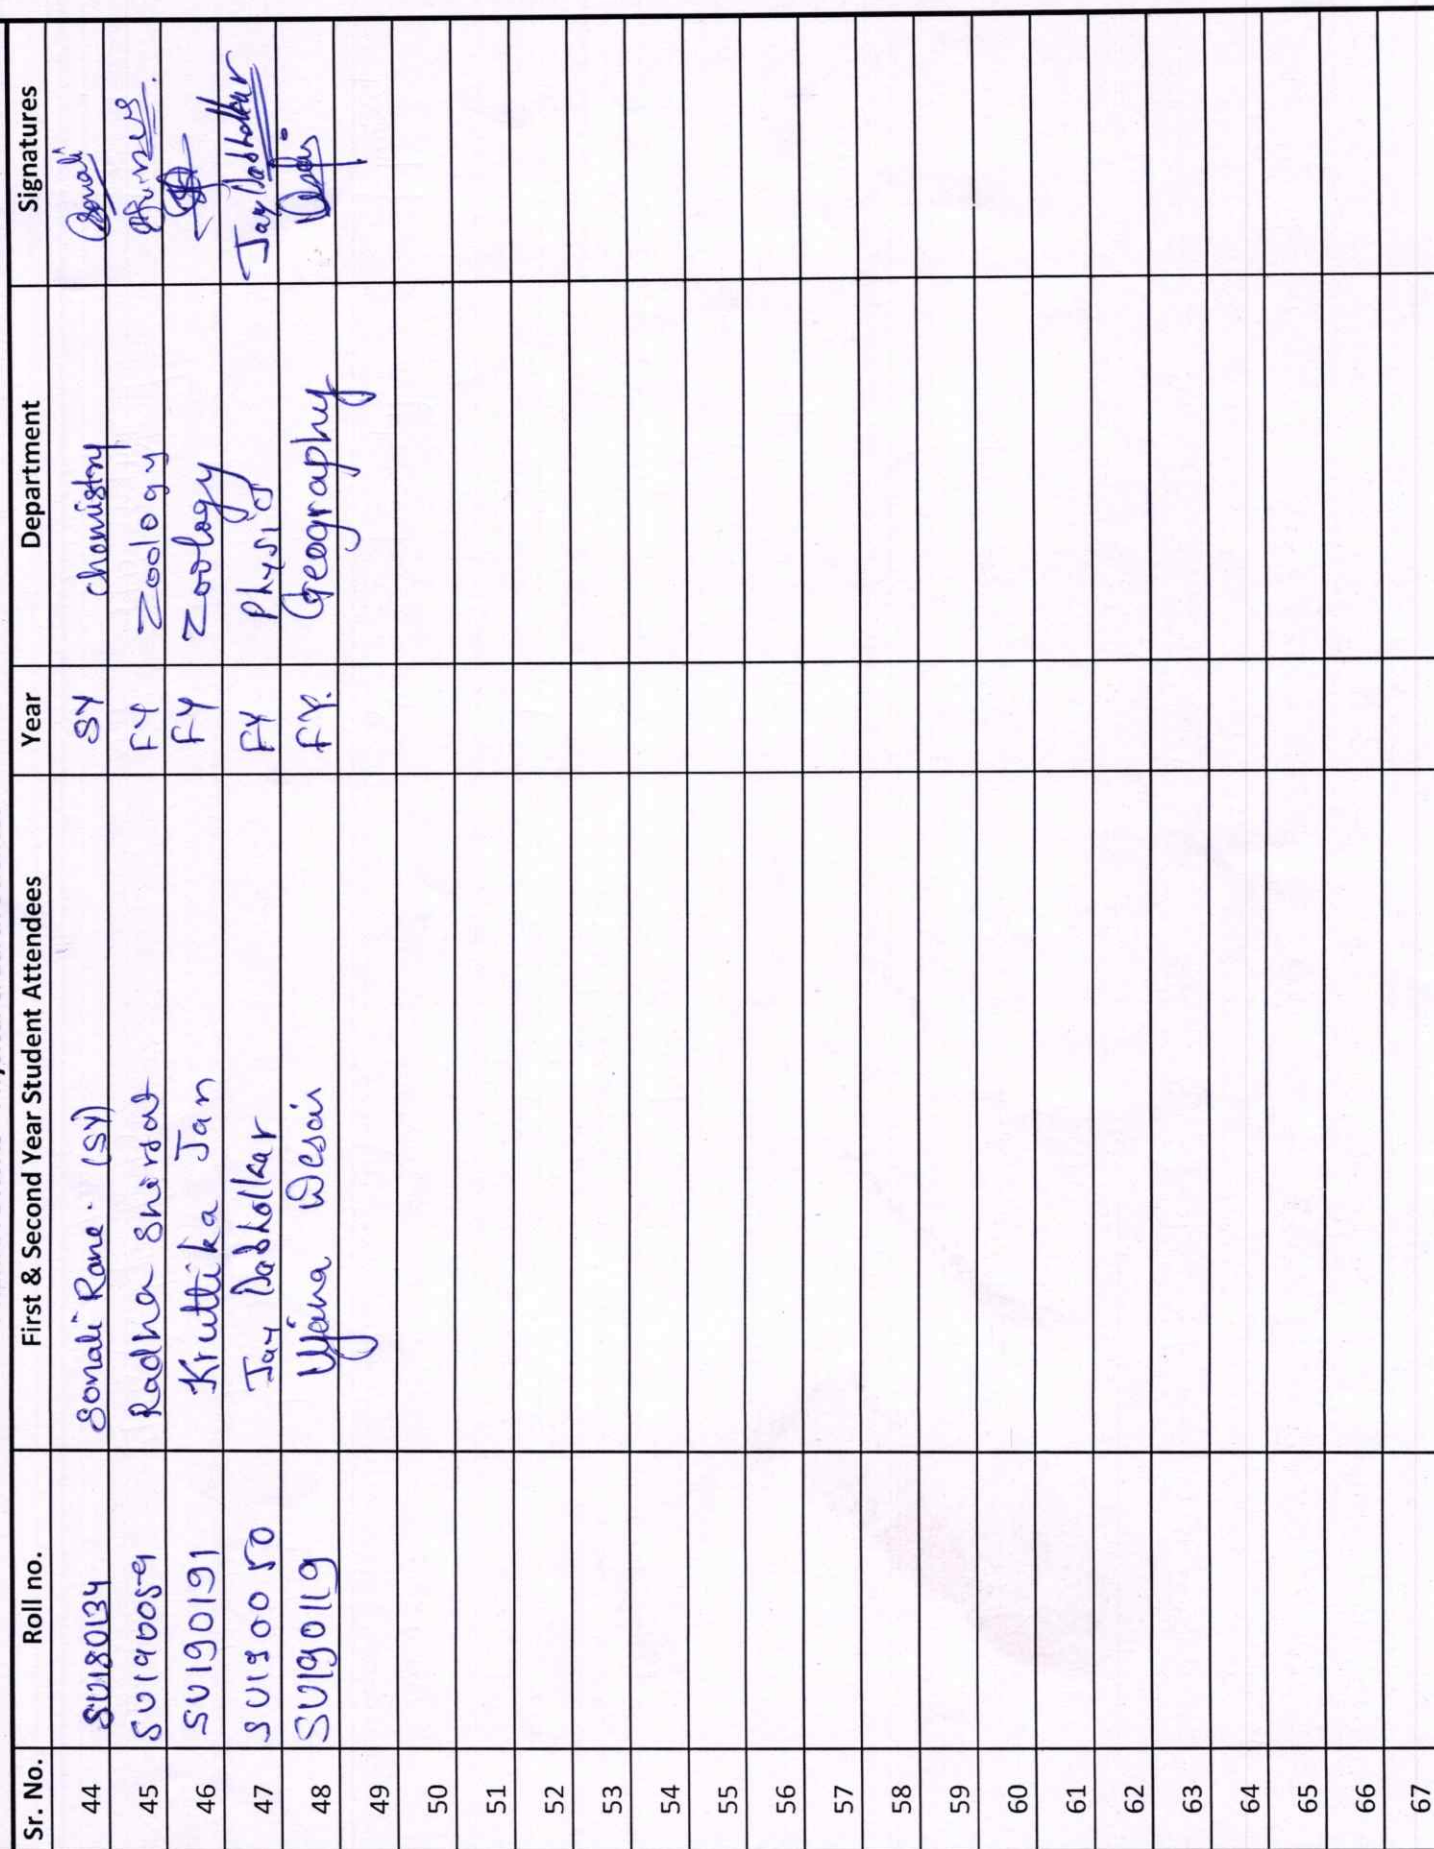 Sr. No. Roll no. First & Second Year Student Attendees Year Department Signatures
44 SU180134 Sonali Rane. (SY) SY chemistry Sonali
45 SU190059 Radha Shirsat FY Zoology
46 SU190191 Kruttika Jan FY Zoology
47 SU190050 Jay Dabholkar FY Physics Jay Dabholkar
48 SU190119 Ujana Desai FY. Geography Desai
49
50
51
52
53
54
55
56
57
58
59
60
61
62
63
64
65
66
67